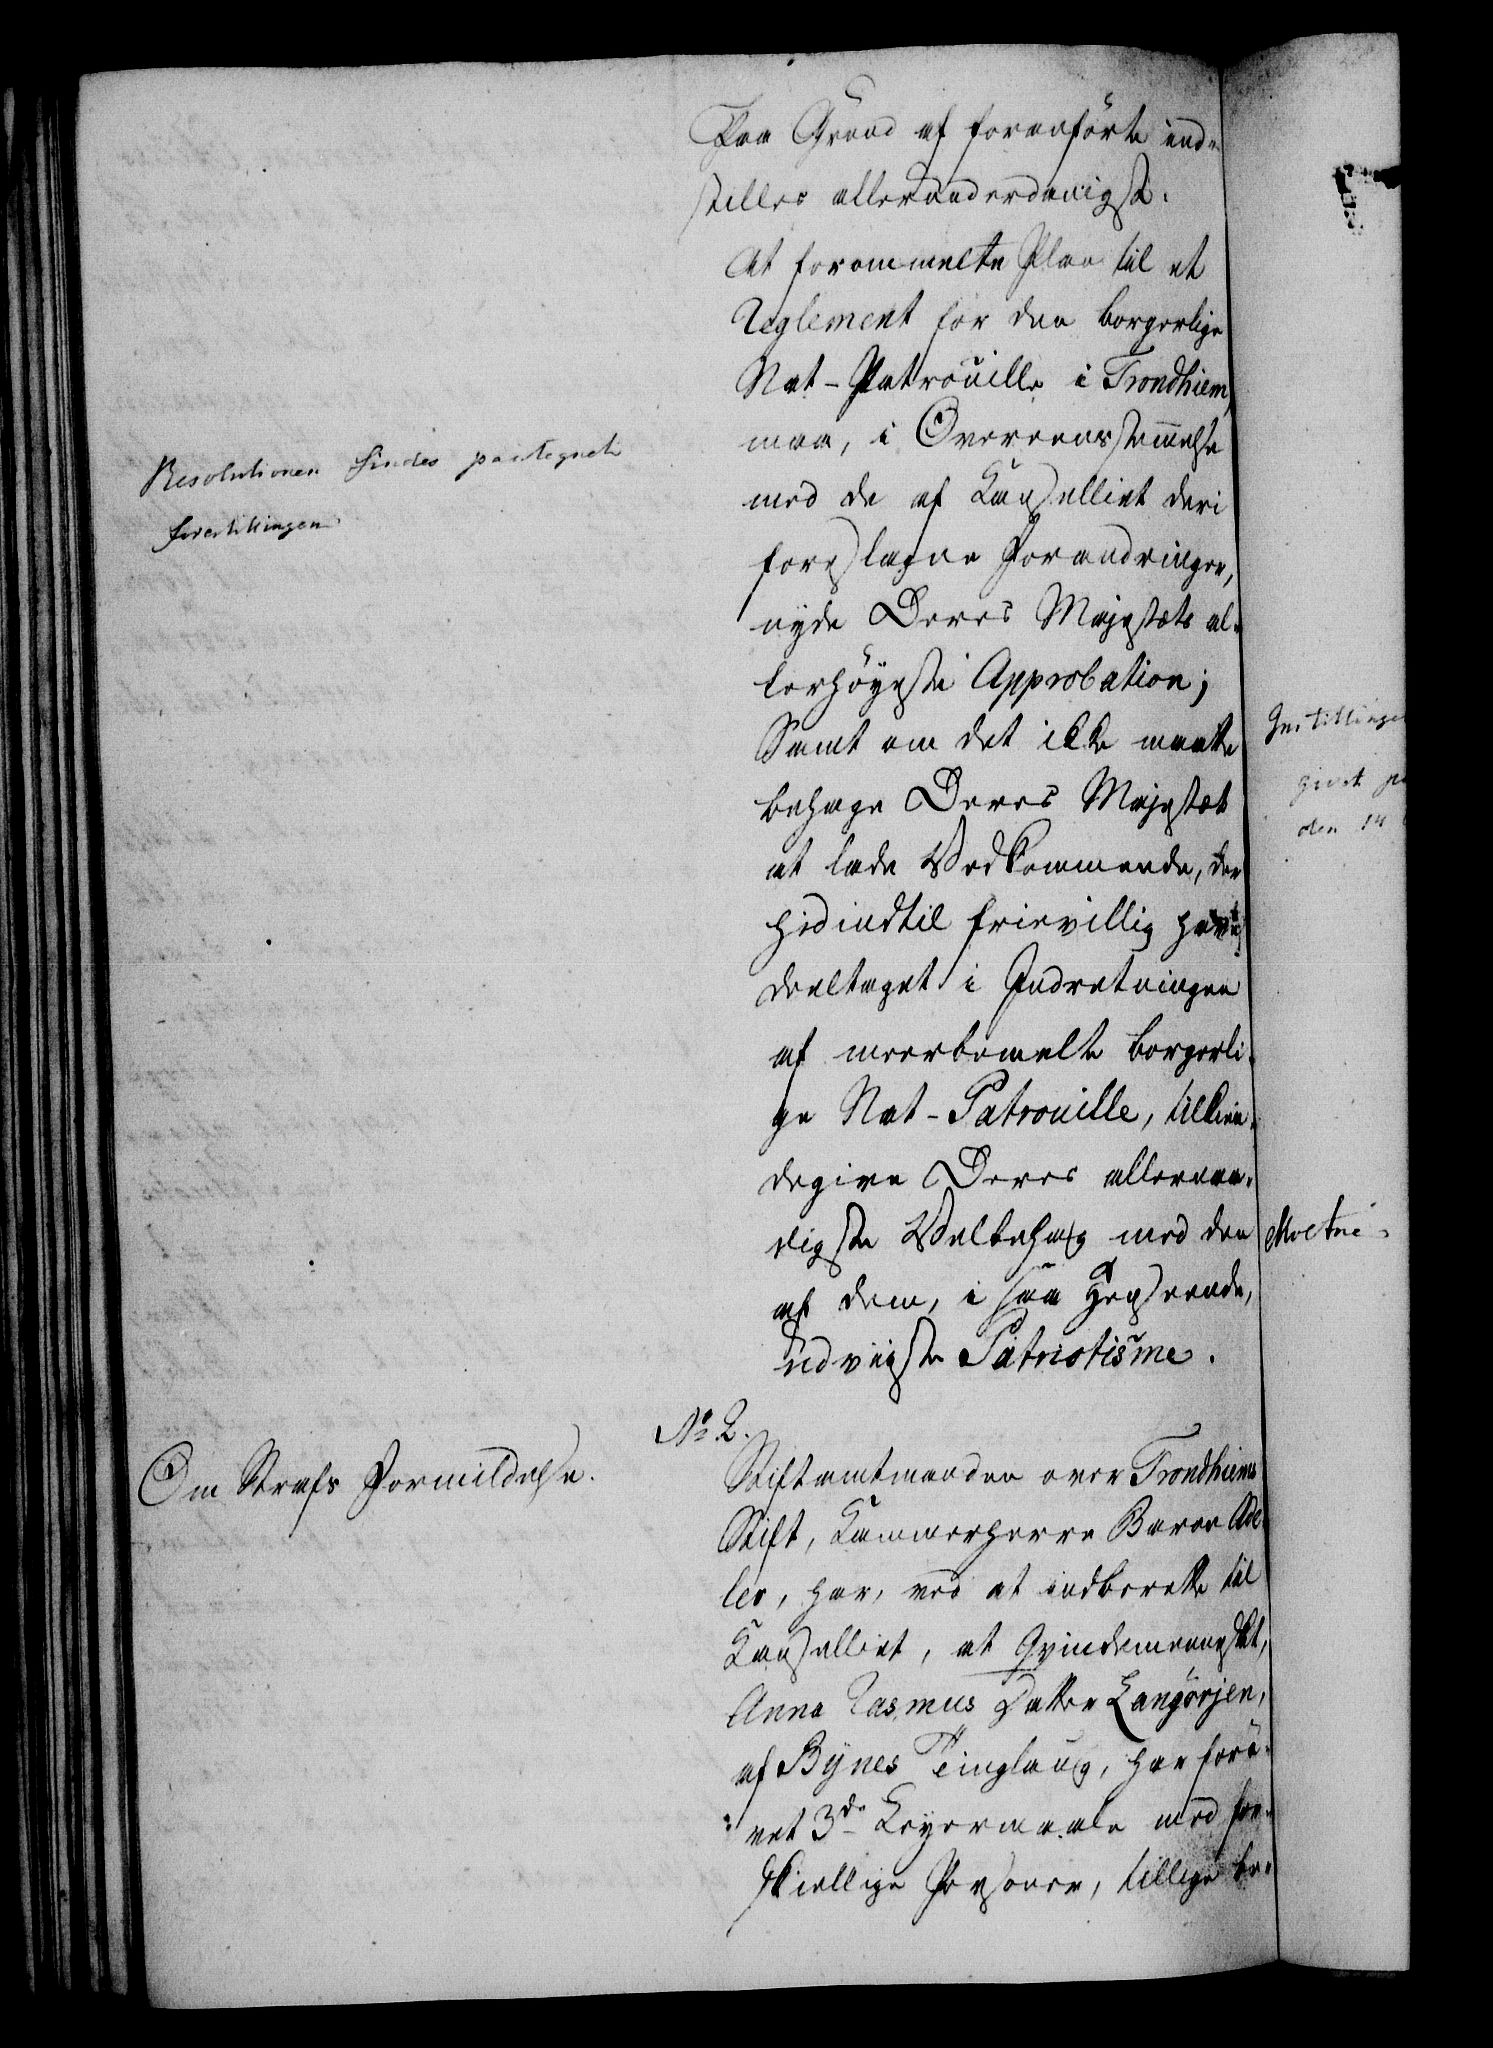 Paa Grund af foranførte ind-
stilles allerunderdanigst:
At forommelte Plan til et
Reglement for den borgerlige
Nat-Patrouille i Trondhiem,
maa, i Overeensstemmelse
med de af Kanselliet deri
foreslagne Forandringer,
nyde Deres Majestæts al-
lerhöyeste Approbation;
Samt om det ikke maatte
behage Deres Majestæt
at lade Vedkommende, der
hidindtil frievillig have
deeltaget i Indretningen
af meerbemelte borgerli-
ge Nat-Patrouille, tilkien-
degive Deres allernaa-
digste Velbehag med den
af dem, i saa Henseende,
udviiste Patriotisme.
Resolutionen findes paategnet
forestillingen
No 2.
Om Strafs Formildelse.
Stiftamtmanden over Trondhiems
Stift, Kammerherre Baron Ade-
ler, har, ved at indberette til
Kanselliet, at Qvindemennesket,
Anna Rasmus Datter Langörjen,
af Bÿnes Tinglaug, har forö-
vet 3de Leyermaale med for-
skiellige Personer, tillige be-
Instillinge
givet p
den 14